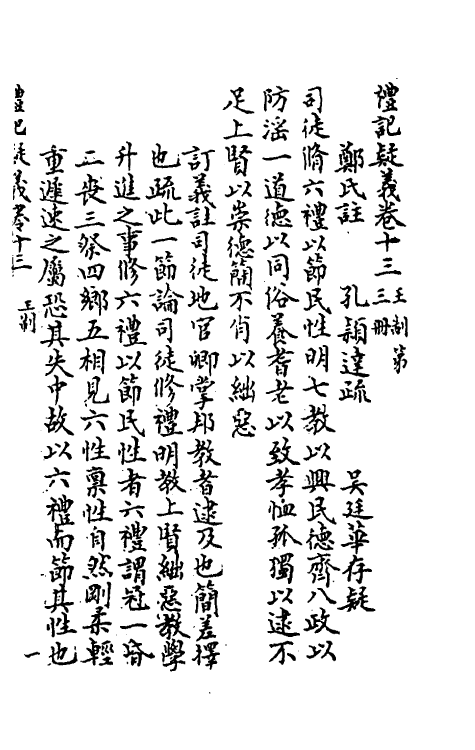 禮記疑義卷十三 王制第三冊
鄭氏註 孔穎達疏 吳廷華存疑
司徒脩六禮以節民性明七教以興民德齊八政以
防淫一道德以同俗養耆老以致孝恤孤獨以逮不
足上賢以崇德簡不肖以絀惡
訂義註司徒地官卿掌邦教者逮及也簡差擇
也疏此一節論司徒修禮明教上賢絀惡教學
升進之事修六禮以節民性者六禮謂冠一昏
二喪三祭四鄉五相見六性稟性自然剛柔輕
重遲速之屬恐其失中故以六禮而節其性也
禮記疑義卷十三 王制 一